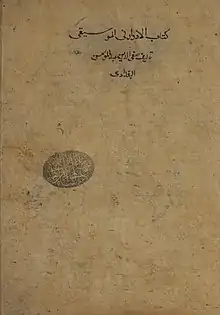 كتاب الادوار في الموسيقى
تاليف صفي الدين عبد المومن
البغدادي